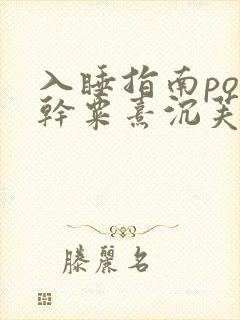 入睡指南po
幹粟熹沉芙
滕麗名